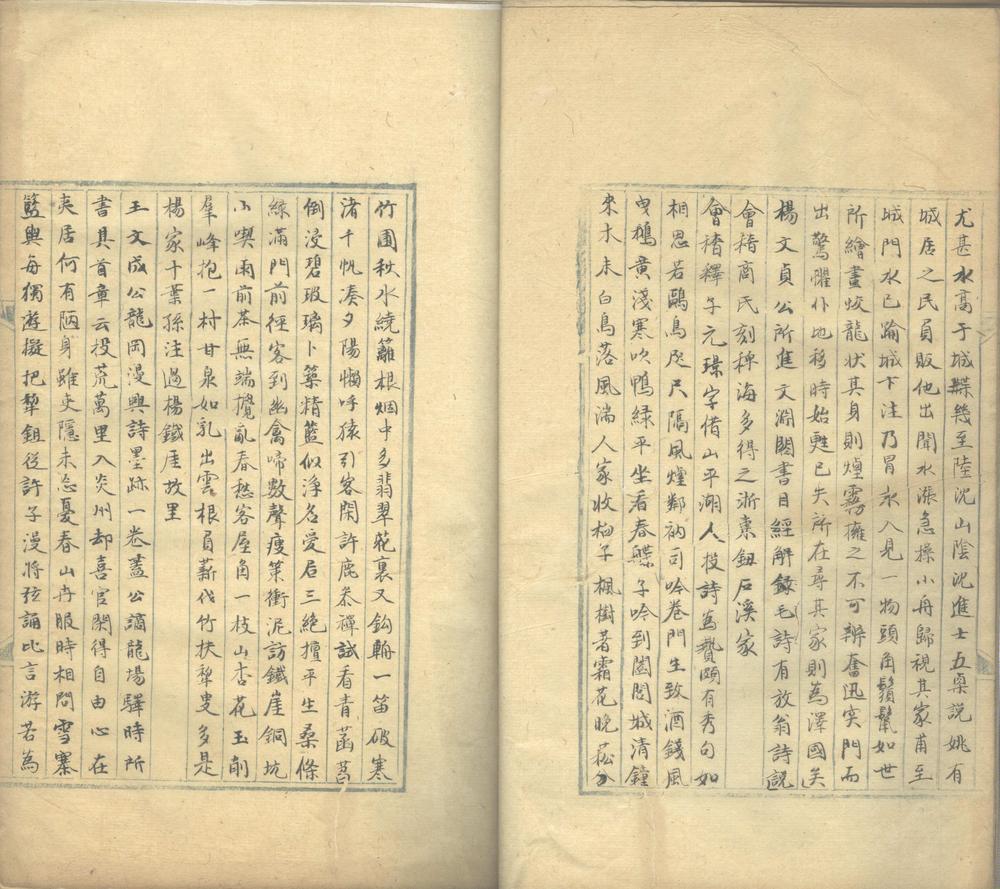 尤甚水高于城堞幾至陸沈山陰沈進士五桌說姚有
城居之民員販他出聞水漲急操小舟歸視其家甫至
城門水已踰城下注乃冒水入見一物頭角鬚鬣如世
所繪畫蛟龍狀其身則煙霧擁之不可辨奮迅突門而
出驚懼仆地移時始甦已失所在尋其家則為澤國矣
楊文貞公所進文淵閣書目經解錄毛詩有放翁詩說
會稽商氏刻稗海多得之浙東鈕石溪家
會稽釋子元璟字借山平湖人投詩為贄頗有秀句如
相思若鷗鳥咫尺隔風煙鄰衲司吟卷門生致酒錢風
曳鵝黃淺寒吹鴨綠平坐看春蝶子吟到闔閭城清鐘
來木末白鳥落風湍人家收桕子楓樹著霜花晚菘分
竹圃秋水繞籬根烟中多翡翠花裏又鈎輈一笛破寒
渚千帆湊夕陽懶呼猿引客閑許鹿叅禪試看青菡萏
倒浸碧瑕璃卜築精藍似浮名愛居三絶擅平生桑條
綠滿門前徑客到幽禽啼數聲瘦策衝泥訪鐵崖銅坑
小喫雨前茶無端攪亂春愁客屋角一枝山杏花玉削
羣峰抱一村甘泉如乳出雲根員薪伐竹扶犂叟多是
楊家十葉孫注過楊鐵厓故里
王文成公龍岡漫興詩墨跡一卷蓋公謫龍場驛時所
書其首章云投荒萬里入炎州却喜官閑得自由心在
夷居何有陋身雖吏隱未忘憂春山卉服時相問雪寨
籃輿每獨遊擬把犂鉏從許子漫將弦誦比言游若為